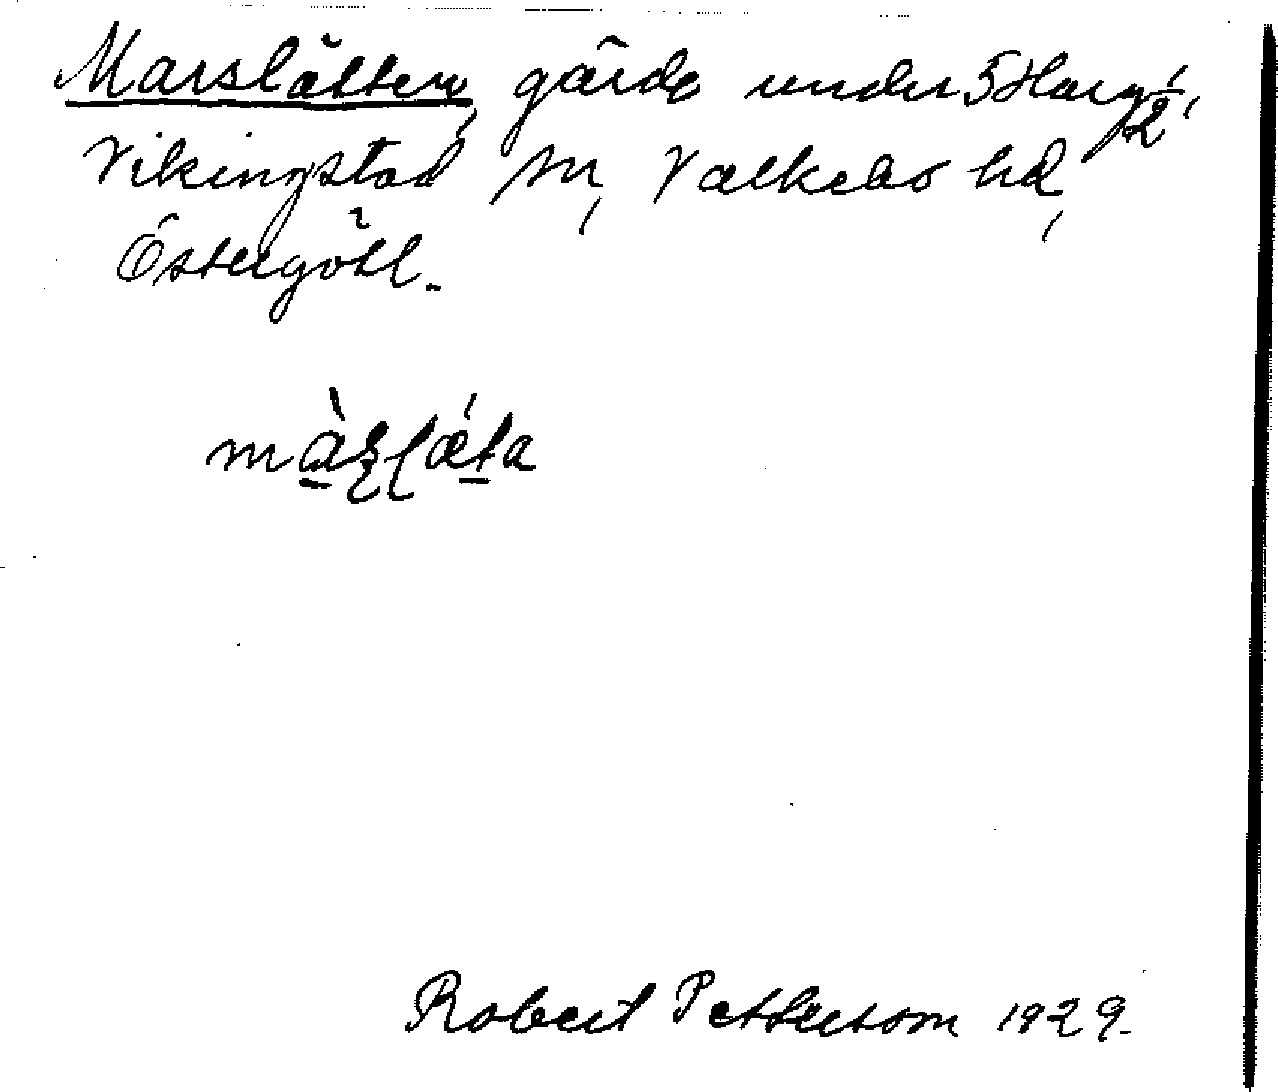 Marslätten, gärde under 5 Harg 1/2,
Vikingstad sn, Valkebo hd,
Östergötl.
Robert Pettersson 1929.